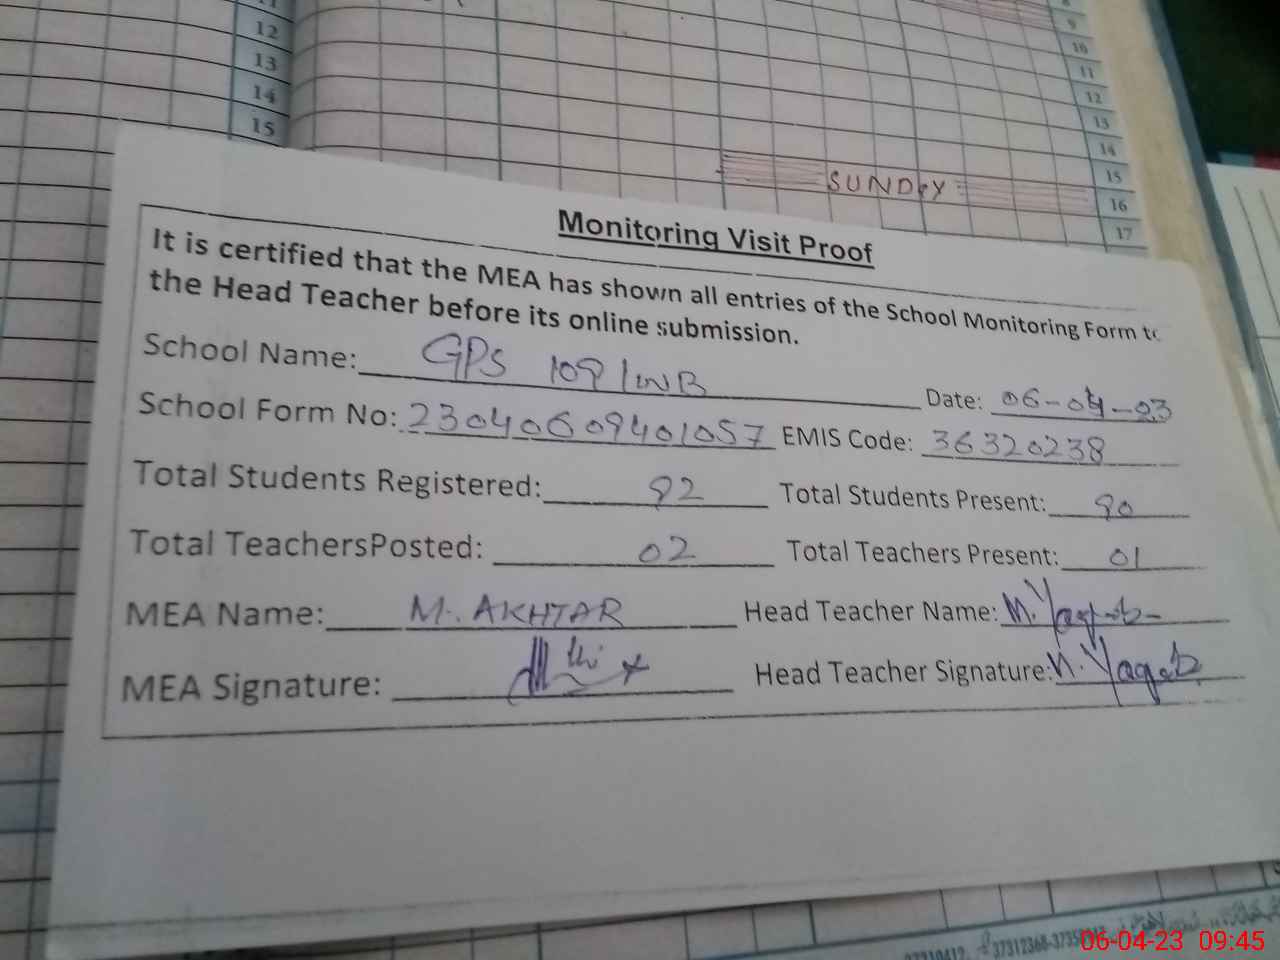 12
13
14
15
9
10
11
12
13
14
15
16
17
SUNDAY
Monitoring Visit Proof
It is certified that the MEA has shown all entries of the School Monitoring Form to
the Head Teacher before its online submission.
School Name: GPS 109/WB Date: 06-04-23
School Form No: 23040609401057 EMIS Code: 36320238
Total Students Registered: 92 Total Students Present: 90
Total TeachersPosted: 02 Total Teachers Present: 01
MEA Name: M. AKHTAR Head Teacher Name: M. Yaqub
MEA Signature: Head Teacher Signature: M. Yaqub
06-04-23 09:45